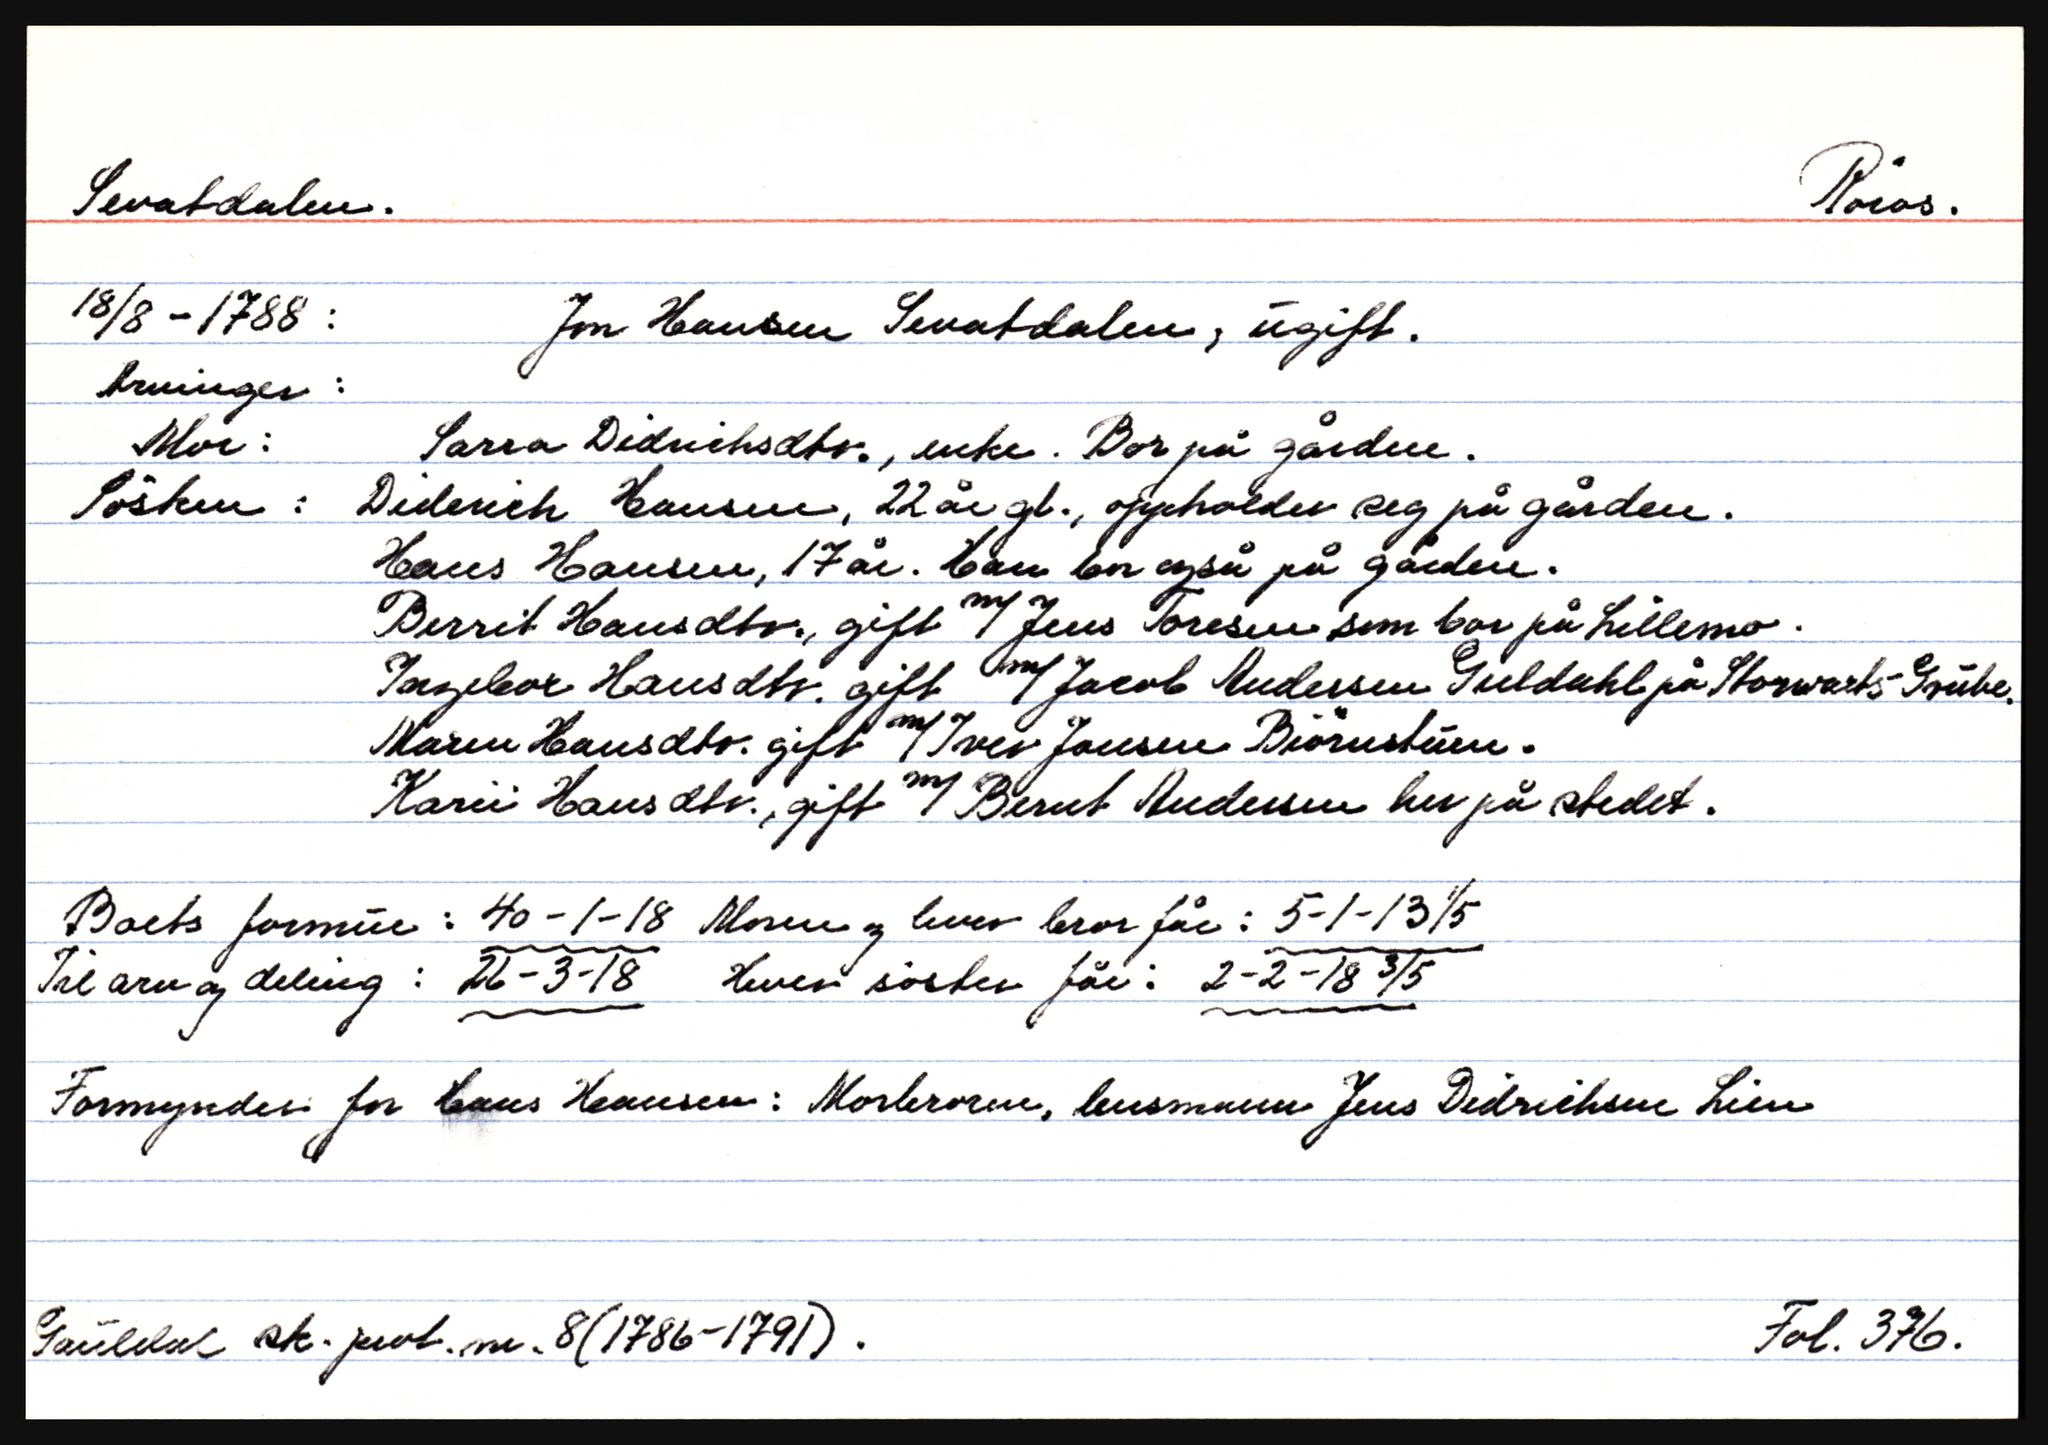 Sevatdalen. Röros.
18/8 - 1788 : Jon Hansen Sevatdalen, ugift.
Arvinger :
Mor : Sarra Didrichsdtr., enke. Bor på gården.
Søsken : Diderich Hansen, 22 år gl., oppholder seg på gården.
Hans Hansen, 17 år. Han bor også på gården.
Berrit Hansdtr., gift m/ Jens Toresen som bor på Lillemo.
Ingebor Hansdtr. gift m/ Jacob Andersen Guldahl på Storwarts-Grube.
Maren Hansdtr. gift m/ Iver Jonsen Biörnstuen.
Karii Hansdtr., gift m/ Bernt Andersen her på stedet.
Boets formue : 40 - 1 - 18 Moren og hver bror får : 5 - 1 - 13 1/5
Til arv og deling : 26 - 3 - 18 Hver søster får : 2 - 2 - 18 3/5
Formynder for Hans Hansen : Morbroren, lensmann Jens Didrichsen Lien
Gauldal sk. prot. nr. 8 (1786 - 1791). Fol. 376.